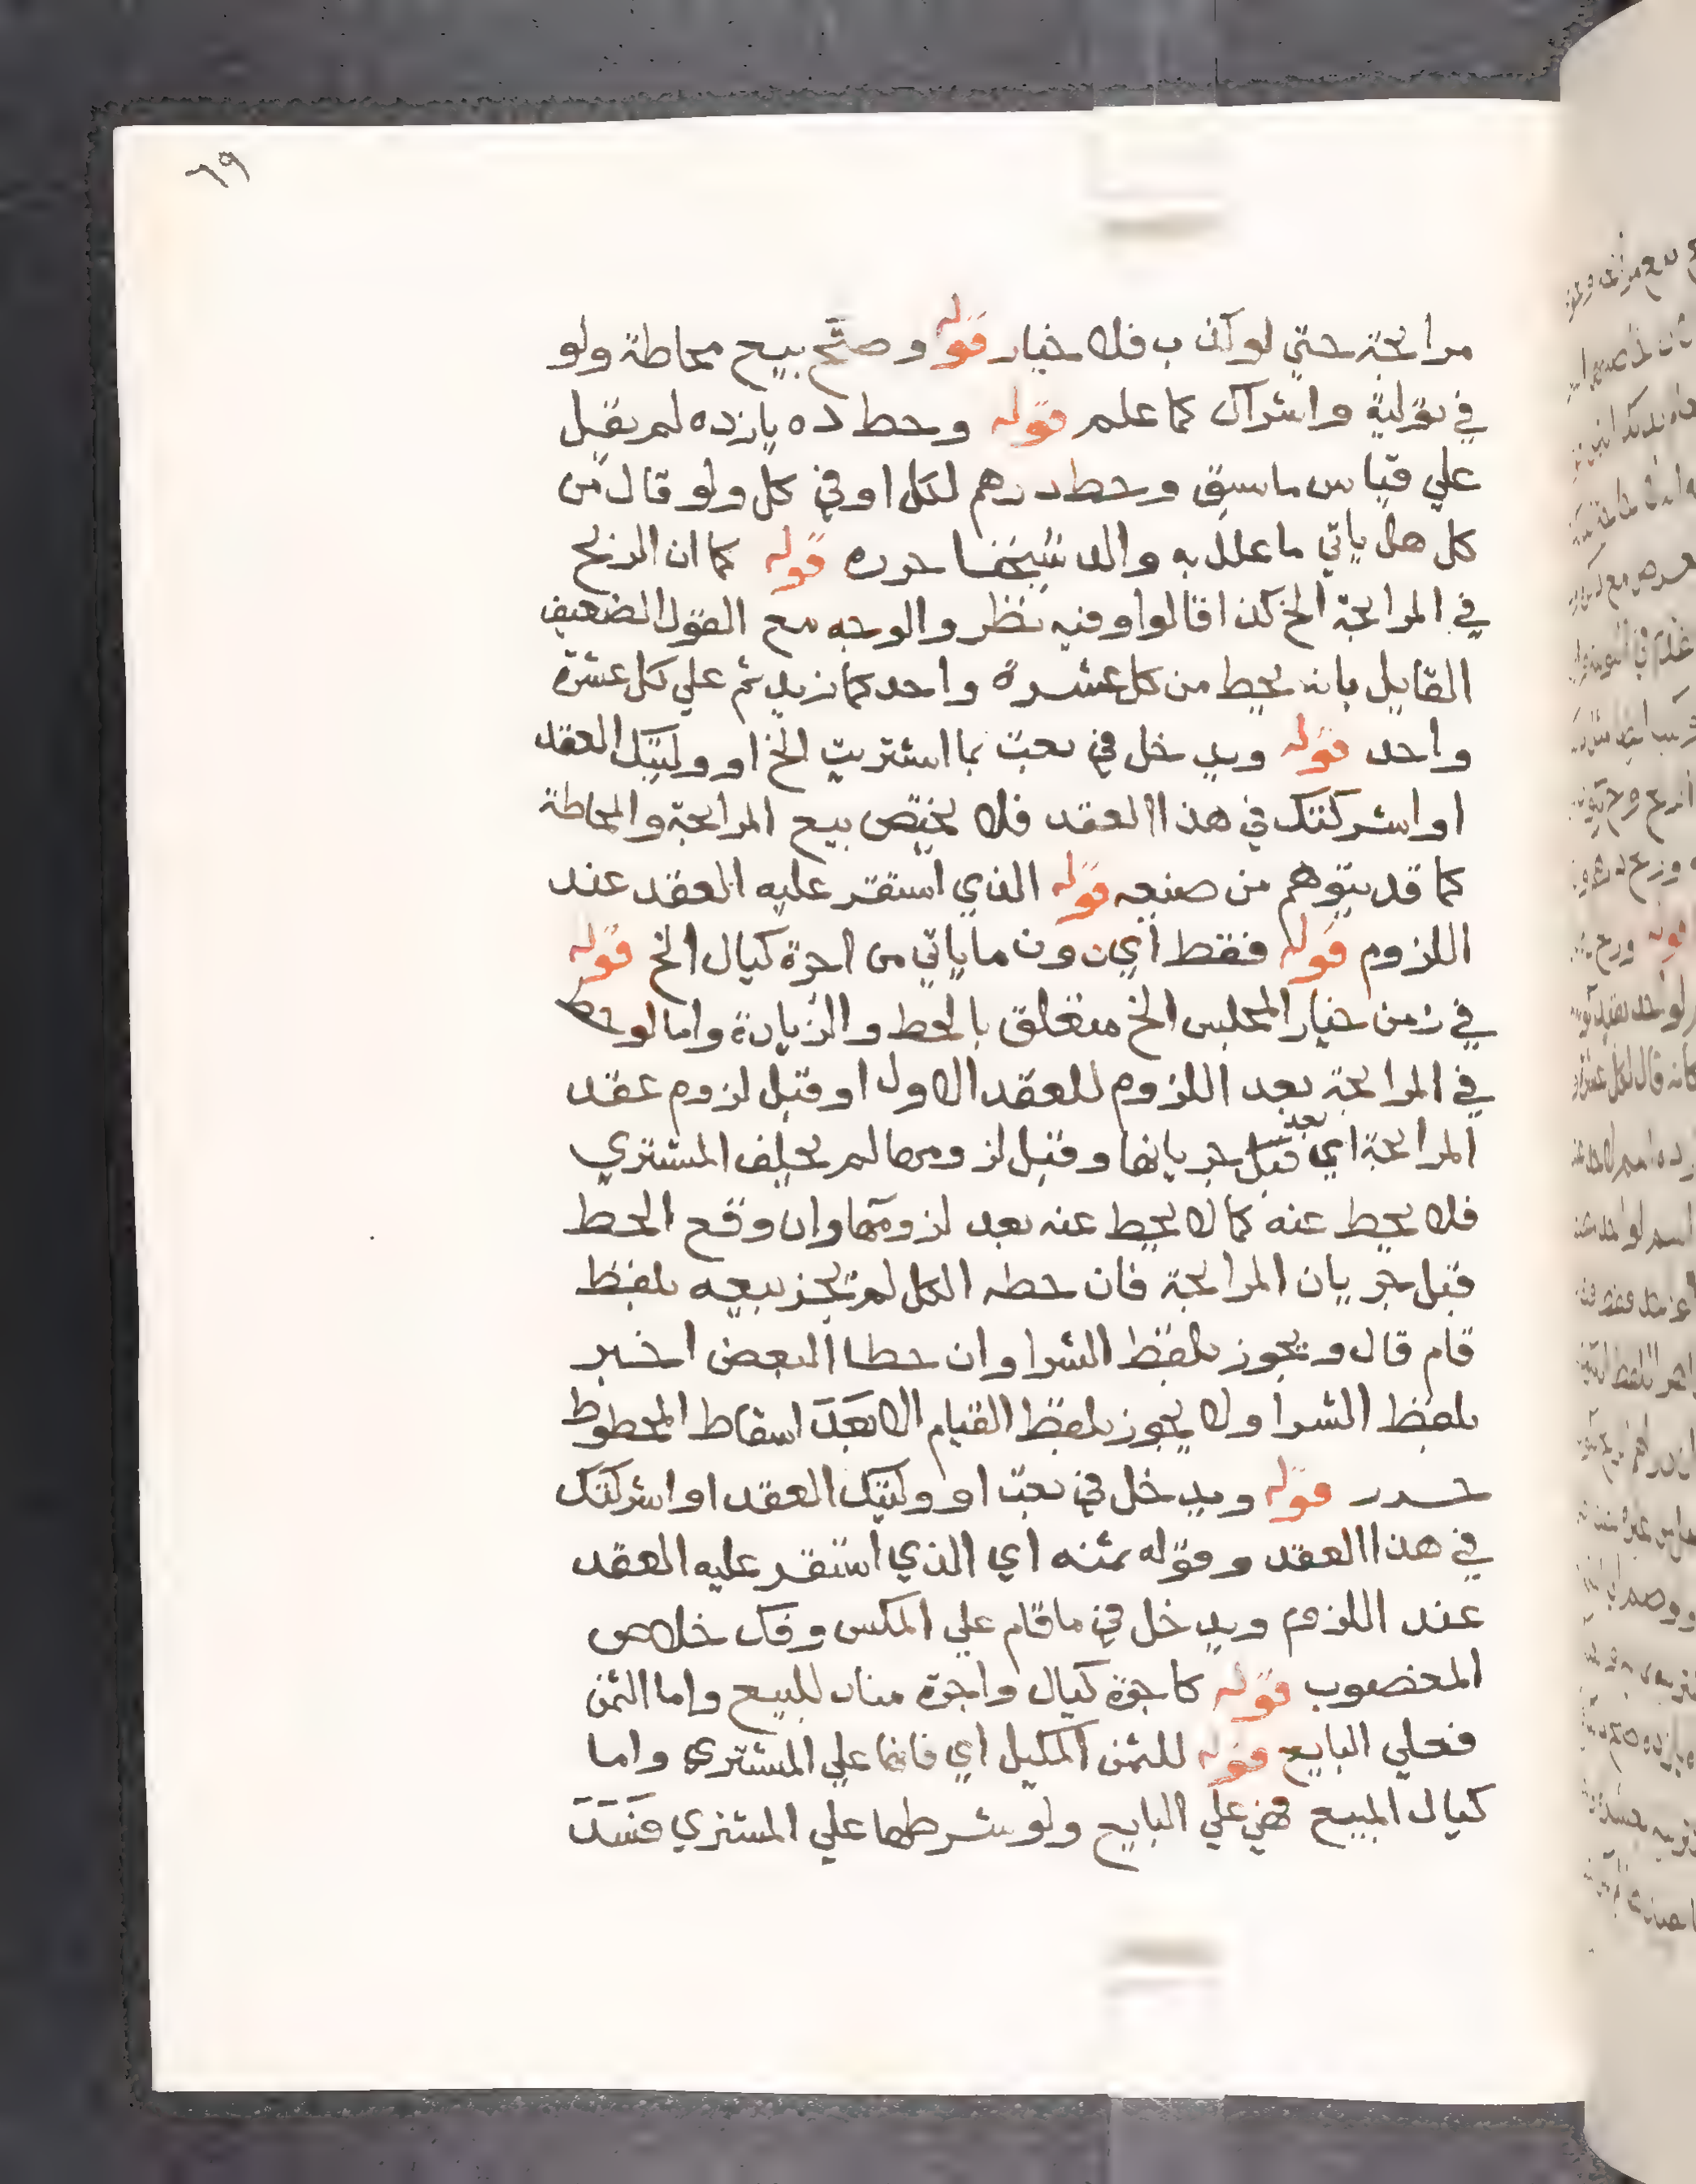 ٦٩
مرابحة حتي لو كذب فلا خيار قوله وصح بيع محاطة ولو
في تولية واشراك كما علم قوله وحط ده يازده لم يقبل
علي قياس ما سبق وحط درهم لكل او في كل ولو قال من
كل هل ياتي ما علل به والد شيخنا حرره قوله كما ان الربح
في المرابحة الخ كذا قالوا وفيه نظر والوجه مع القول الضعيف
القايل بانه يحط من كل عشرة واحد كما زيد ثم علي كل عشرة
واحد قوله ويدخل في بعت بما اشتريت الخ او وليتك العقد
او اشركتك في هذا العقد فلا يختص بيع المرابحة والمحاطة
كما قد يتوهم من صنيعه قوله الذي استقر عليه العقد عند
اللزوم قوله فقط أي دون ما ياتي من اجرة كيال الخ قوله
في زمن خيار المجلس الخ متعلق بالحط والزيادة واما لو حط
في المرابحة بعد اللزوم للعقد الاول او قبل لزوم عقد
المرابحة اي قبل بعد جريانها وقبل لزومها لم يحلف المشتري
فلا يحط عنه كما لا يحط عنه بعد لزومها وان وقع الحط
قبل جريان المرابحة فان حطه الكل لم تجز بيعه بلفظ
قام قال ويجوز بلفظ الشرا وان حطا البعض اخبر
بلفظ الشرا ولا يجوز بلفظ القيام الا بعد اسقاط المحطوط
حرر قوله ويدخل في بعت او وليتك العقد او اشركتك
في هذا العقد وقوله ثمنه اي الذي استقر عليه العقد
عند اللزوم ويدخل في ما قام علي المكس وفك خلاص
المغصوب قوله كاجرة كيال واجرة مناد للبيع واما الثمن
فعلي البايع قوله للثمن المكيل اي فانها علي المشتري واما
كيال المبيع فهي علي البايع ولو شرطها علي المشتري فسد